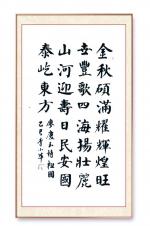 金秋碩滿耀輝煌旺
豐歌四海揚壯麗
山河迎壽日民安國
泰屹東方
詩祖國